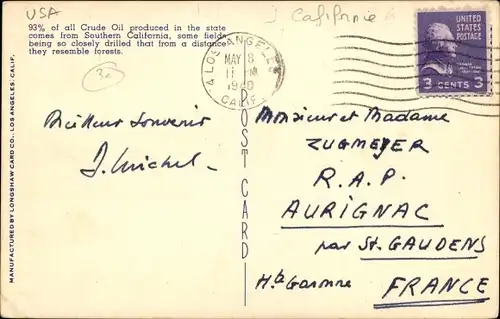 USA
California
93% of all Crude Oil produced in the state
comes from Southern California, some fields
being so closely drilled that from a distance
they resemble forests.
30
LOS ANGELES
MAY 8
11 M
1940
CALIF.
UNITED
STATES
POSTAGE
3 CENTS 3
MANUFACTURED BY LONGSHAW CARD CO., LOS ANGELES, CALIF.
POST CARD
Meilleur souvenir
J. Michel
Monsieur et Madame
ZUGMEYER
R.A.P.
AURIGNAC
par St. GAUDENS
Hte Garonne
FRANCE